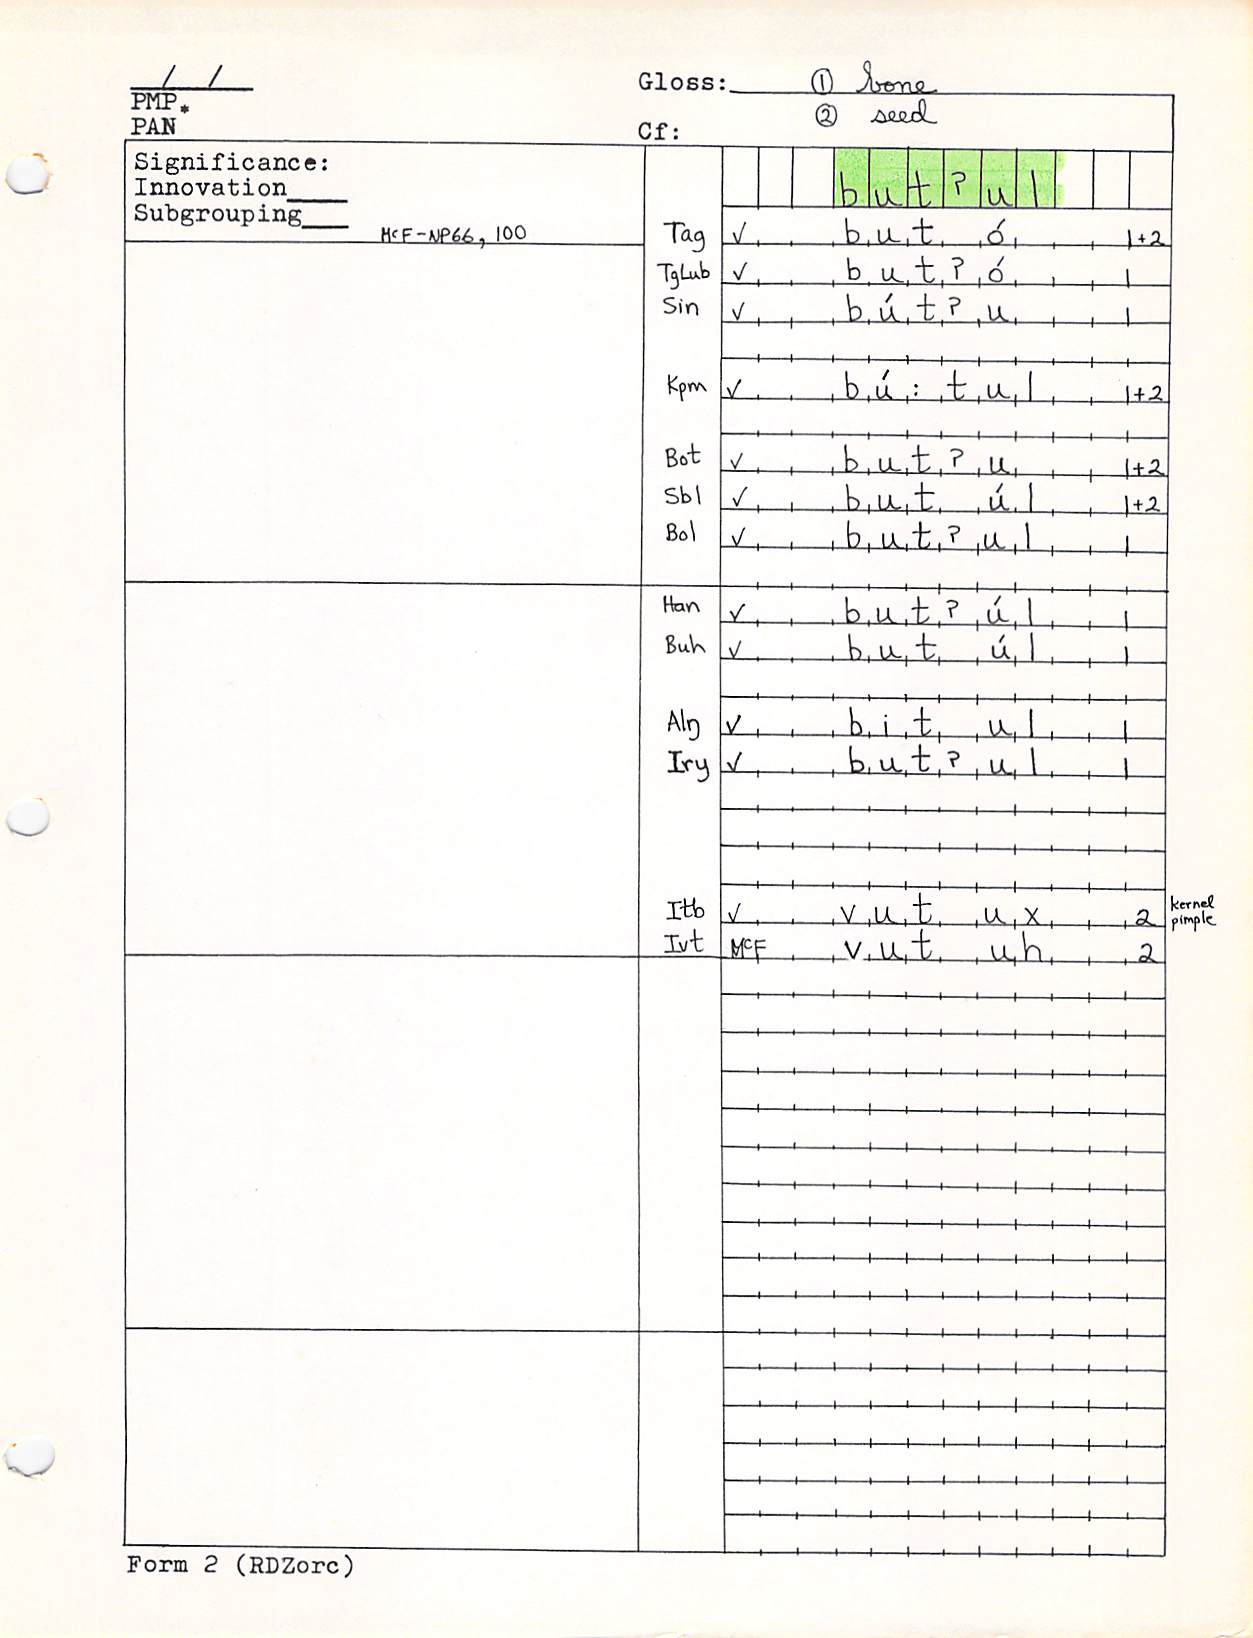 / /
PMP*
PAN
Gloss: ① bone
② seed
Cf:
Significance:
Innovation____
Subgrouping____
McF-NP66, 100
b u t ? u l
Tag ✓ b u t ó 1+2
TgLub ✓ b u t ? ó 1
Sin ✓ b ú t ? u 1
Kpm ✓ b ú : t u l 1+2
Bot ✓ b u t ? u 1+2
Sbl ✓ b u t ú l 1+2
Bol ✓ b u t ? u l 1
Han ✓ b u t ? ú l 1
Buh ✓ b u t ú l 1
Alŋ ✓ b i t u l 1
Iry ✓ b u t ? u l 1
Itb ✓ v u t u x 2 kernel pimple
Ivt McF v u t u h 2
Form 2 (RDZorc)